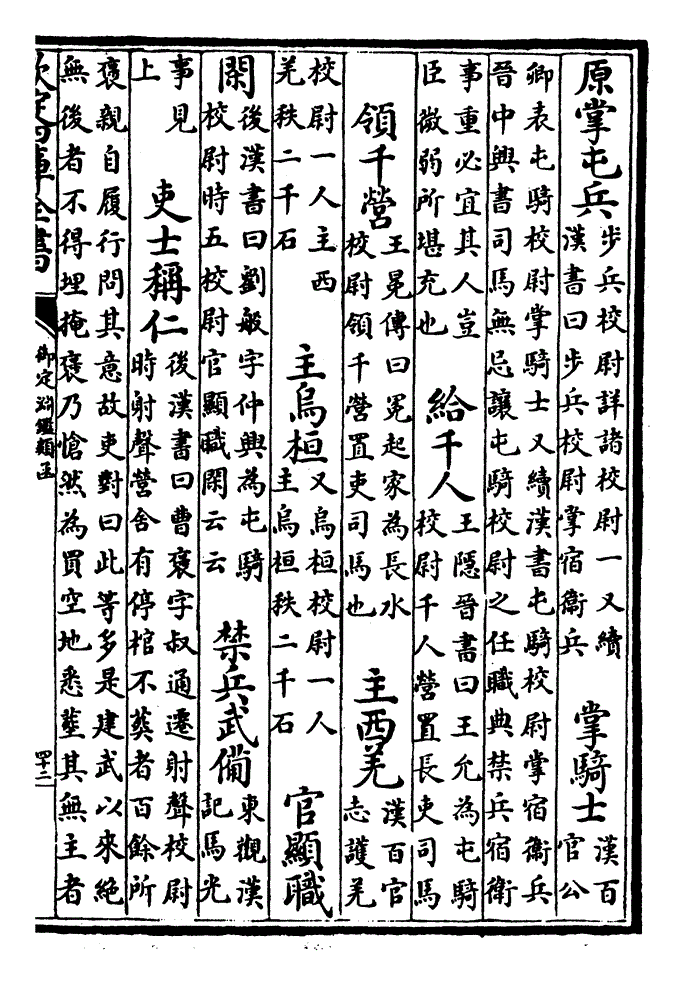 原掌屯兵步兵校尉詳諸校尉一又續漢書曰步兵校尉掌宿衞兵　掌騎士漢百官公
卿表屯騎校尉掌騎士又續漢書屯騎校尉掌宿衞兵晉中興書司馬無忌讓屯騎校尉之任職典禁兵宿衞
事重必宜其人豈臣微弱所堪充也　給千人王隱晉書曰王允為屯騎校尉千人營置長吏司馬
領千營王晃傳曰冕起家為長水校尉領千營置吏司馬也　主西羌漢百官志護羌
校尉一人主西羌秩二千石　主烏桓又烏桓校尉一人主烏桓秩二千石　官顯職
閑後漢書曰劉般字仲興為屯騎校尉時五校尉官顯職閑云云　禁兵武備東觀漢記馬光
事見上　吏士稱仁後漢書曰曹褒字叔通遷射聲校尉時射聲營舍有停棺不葬者百餘所
褒親自履行問其意故吏對曰此等多是建武以來絶無後者不得埋掩褒乃愴然為買空地悉葬其無主者
欽定四庫全書
御定淵鑑類函
四十二